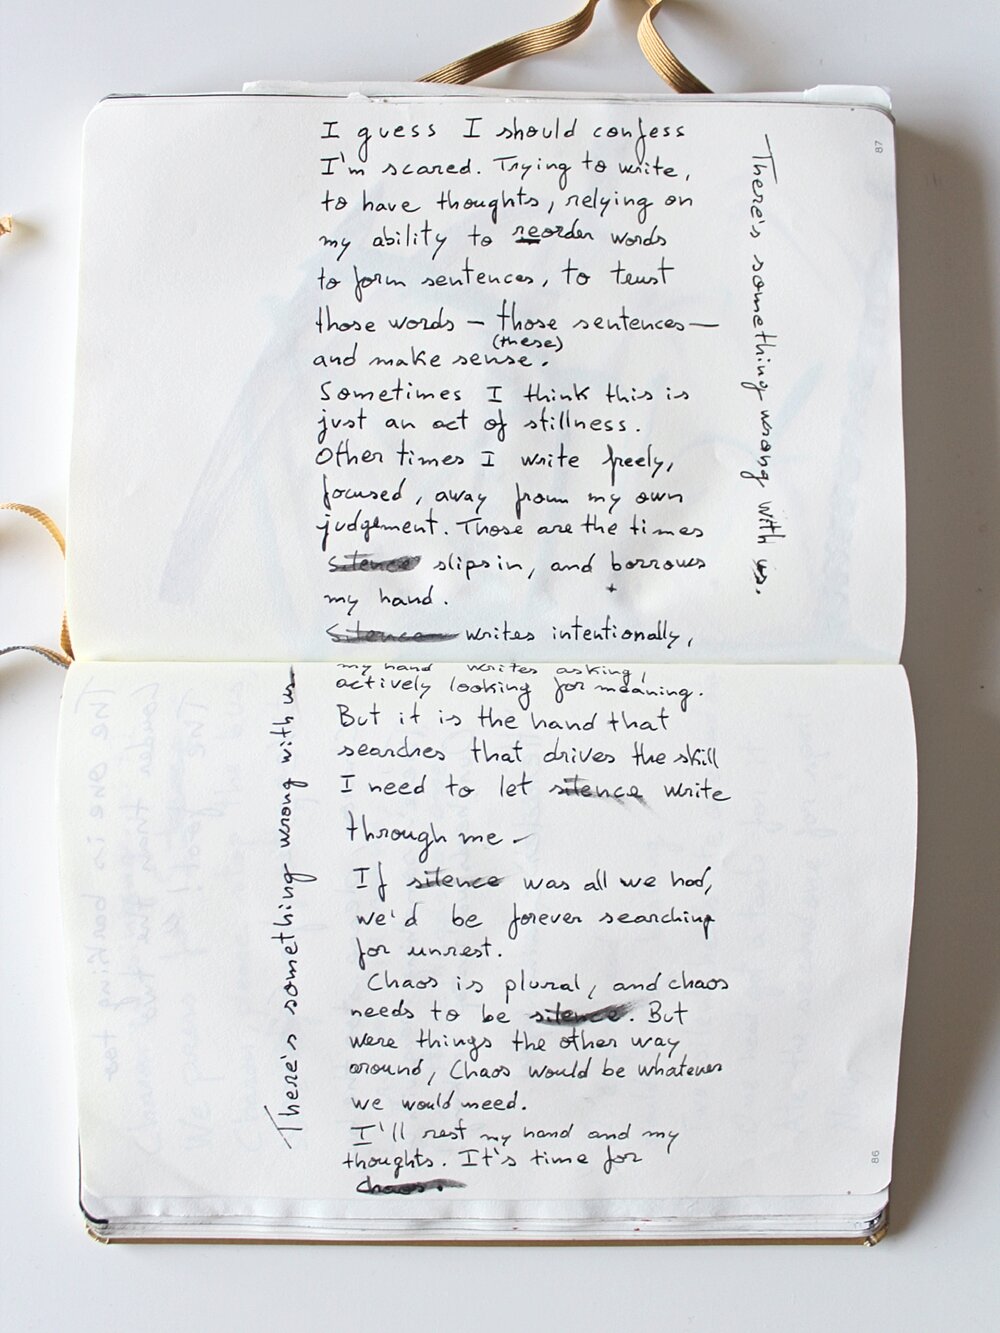 I guess I should confess
I'm scared. Trying to write,
to have thoughts, relying on
my ability to reorder words
to form sentences, to trust
those words — those sentences —
(these)
and make sense.
Sometimes I think this is
just an act of stillness.
Other times I write freely,
focused, away from my own
judgement. Those are the times
silence slips in, and borrows
my hand.
Silence writes intentionally,
my hand writes asking,
actively looking for meaning.
But it is the hand that
searches that drives the skill
I need to let silence write
through me –
If silence was all we had,
we'd be forever searching
for unrest.
Chaos is plural, and chaos
needs to be silence. But
were things the other way
around, Chaos would be whatever
we would need.
I'll rest my hand and my
thoughts. It's time for
chaos.
There's something wrong with us.
There's something wrong with us
87
86